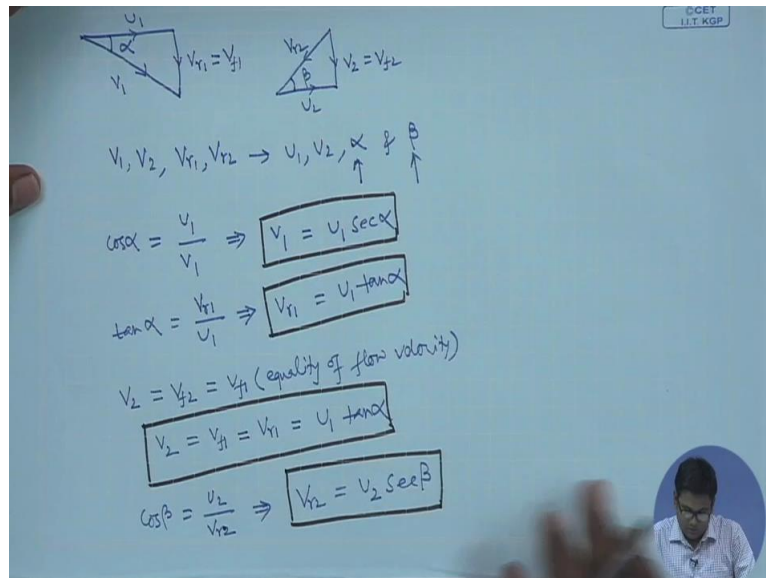 ©CET
I.I.T. KGP
U₁
α
V₁
Vr₁ = Vf₁
Vr₂
β
U₂
V₂ = Vf₂
V₁, V₂, Vr₁, Vr₂ → U₁, U₂, α & β
cosα = U₁/V₁ ⇒ V₁ = U₁ secα
tanα = Vr₁/U₁ ⇒ Vr₁ = U₁ tanα
V₂ = Vf₂ = Vf₁ (equality of flow velocity)
V₂ = Vf₁ = Vr₁ = U₁ tanα
cosβ = U₂/Vr₂ ⇒ Vr₂ = U₂ secβ